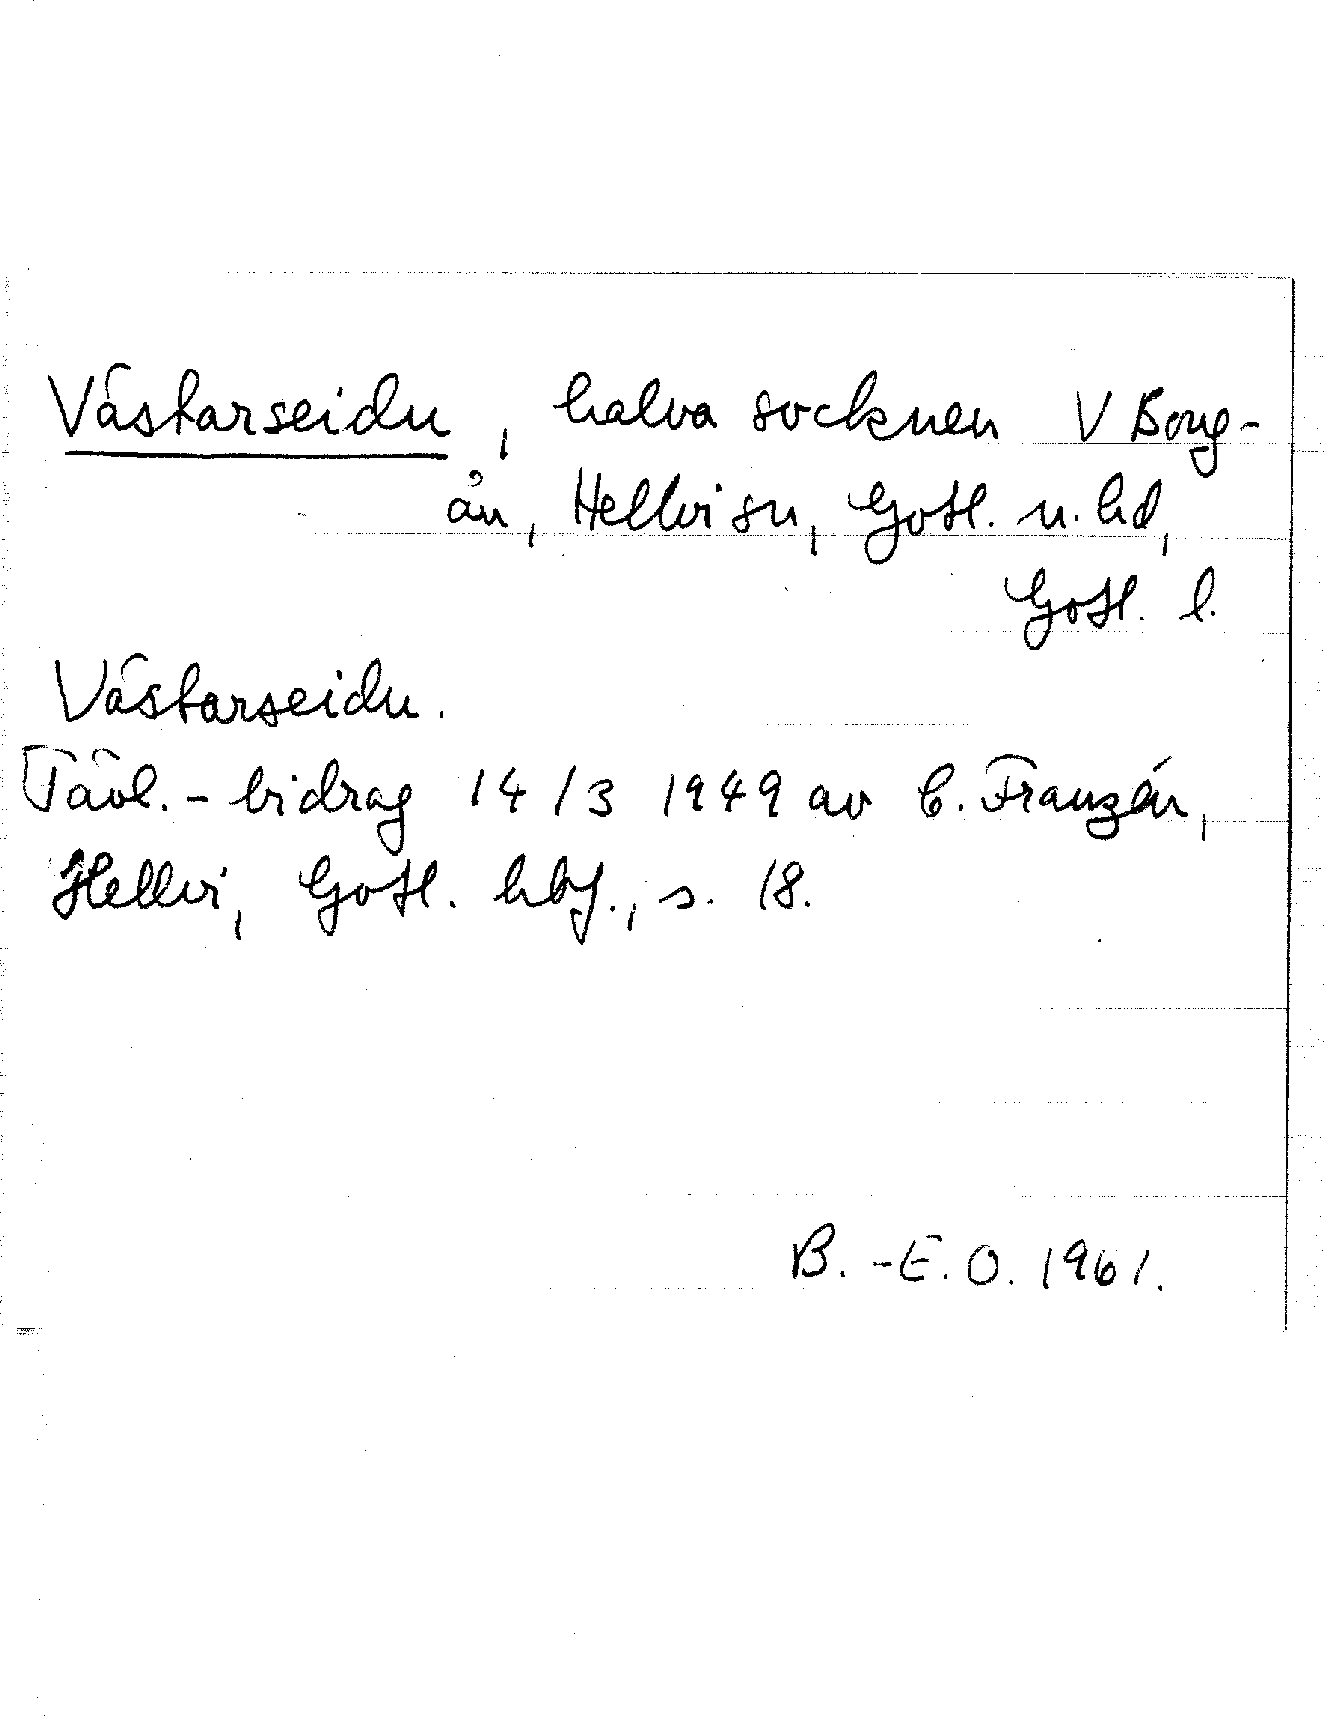 Västarseidu, halva socknen V Borg-
ån, Hellvi sn, Gotl. n. hd,
Gotl. l.
Västarseidu.
Tävl.-bidrag 14/3 1949 av C. Franzén,
Hellvi, Gotl. hbf., s. 18.
B.-E.O. 1961.